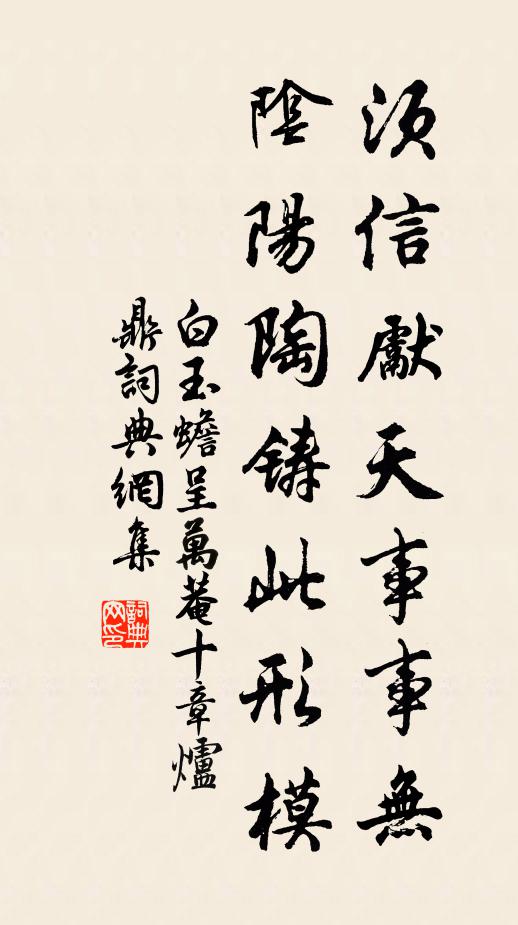 須信獻天事事無
陰陽陶鑄此形模
白玉蟾呈萬菴十章爐
鼎詞典網集
詞典
网印